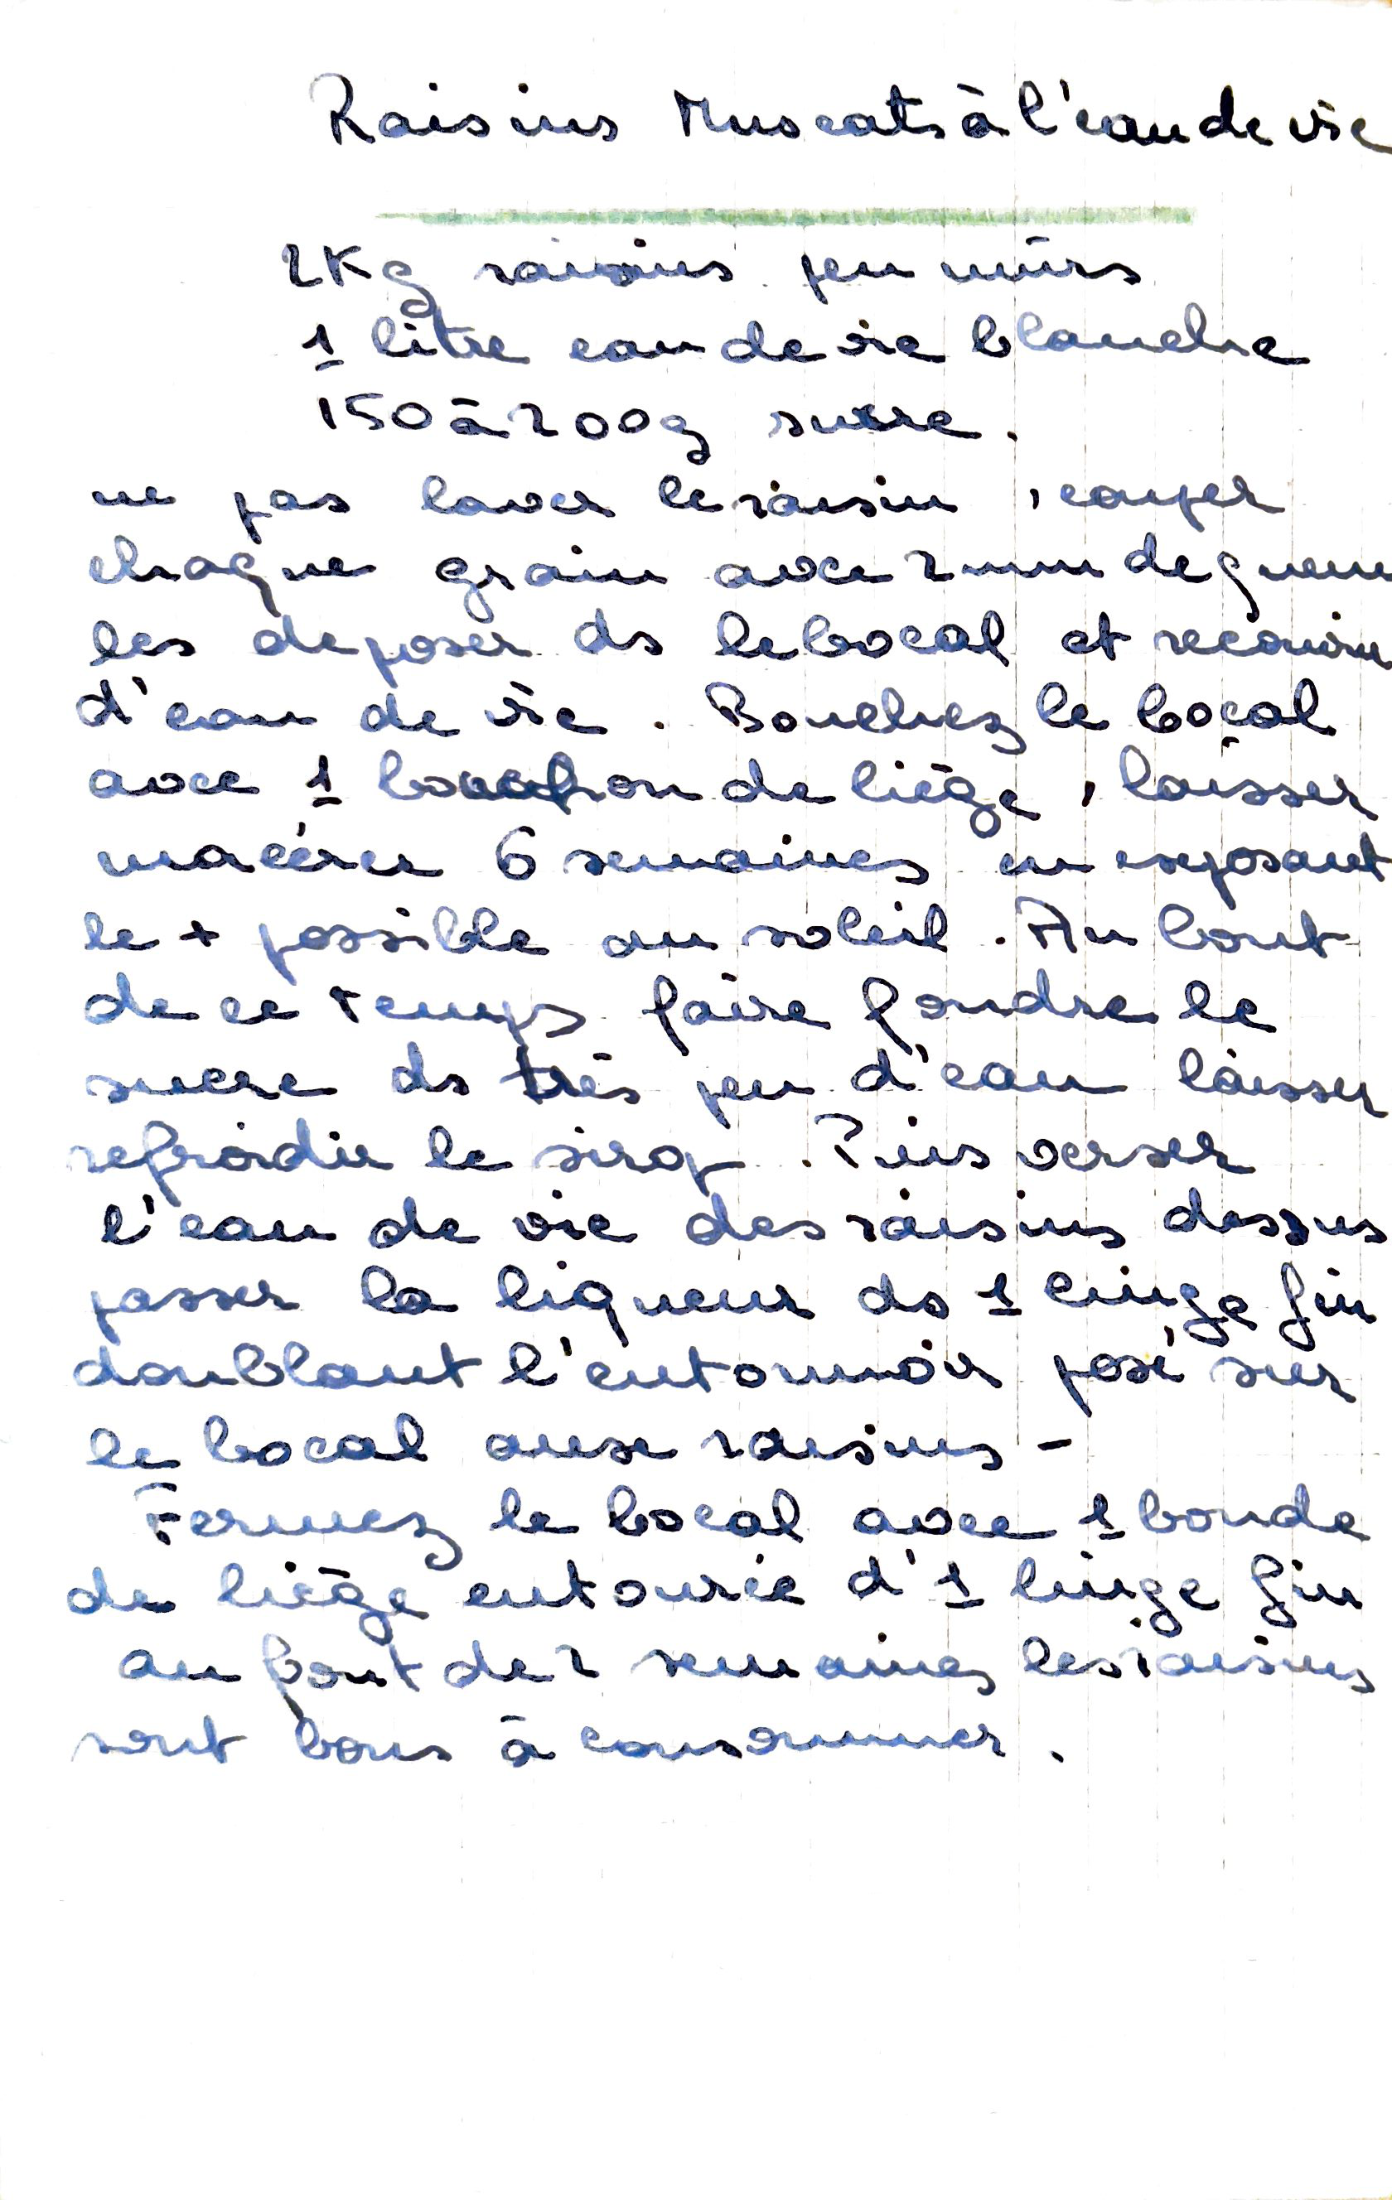 Raisins Muscats à l'eau de vie
2Kg raisins peu mûrs
1 litre eau de vie blanche
150 à 200g sucre.
ne pas laver le raisin, couper
chaque grain avec 2 mm de queue
les deposer ds le bocal et recouvrir
d'eau de vie. Bouchez le bocal
avec 1 bouchon de liège, laisser
macérer 6 semaines en exposant
le + possible au soleil. Au bout
de ce temps faire fondre le
sucre ds très peu d'eau laisser
refroidir le sirop. Puis verser
l'eau de vie des raisins dessus
passer la liqueur ds 1 linge fin
doublant l'entonnoir posé sur
le bocal aux raisins -
Fermez le bocal avec 1 bonde
de liège entourée d'1 linge fin
au bout de 2 semaines les raisins
sont bons à consommer.